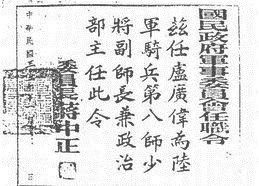 國民政府軍事委員會任職令
茲任盧廣偉為陸
軍騎兵第八師少
將副師長兼政治
部主任此令
委員長蔣中正
中華民國三